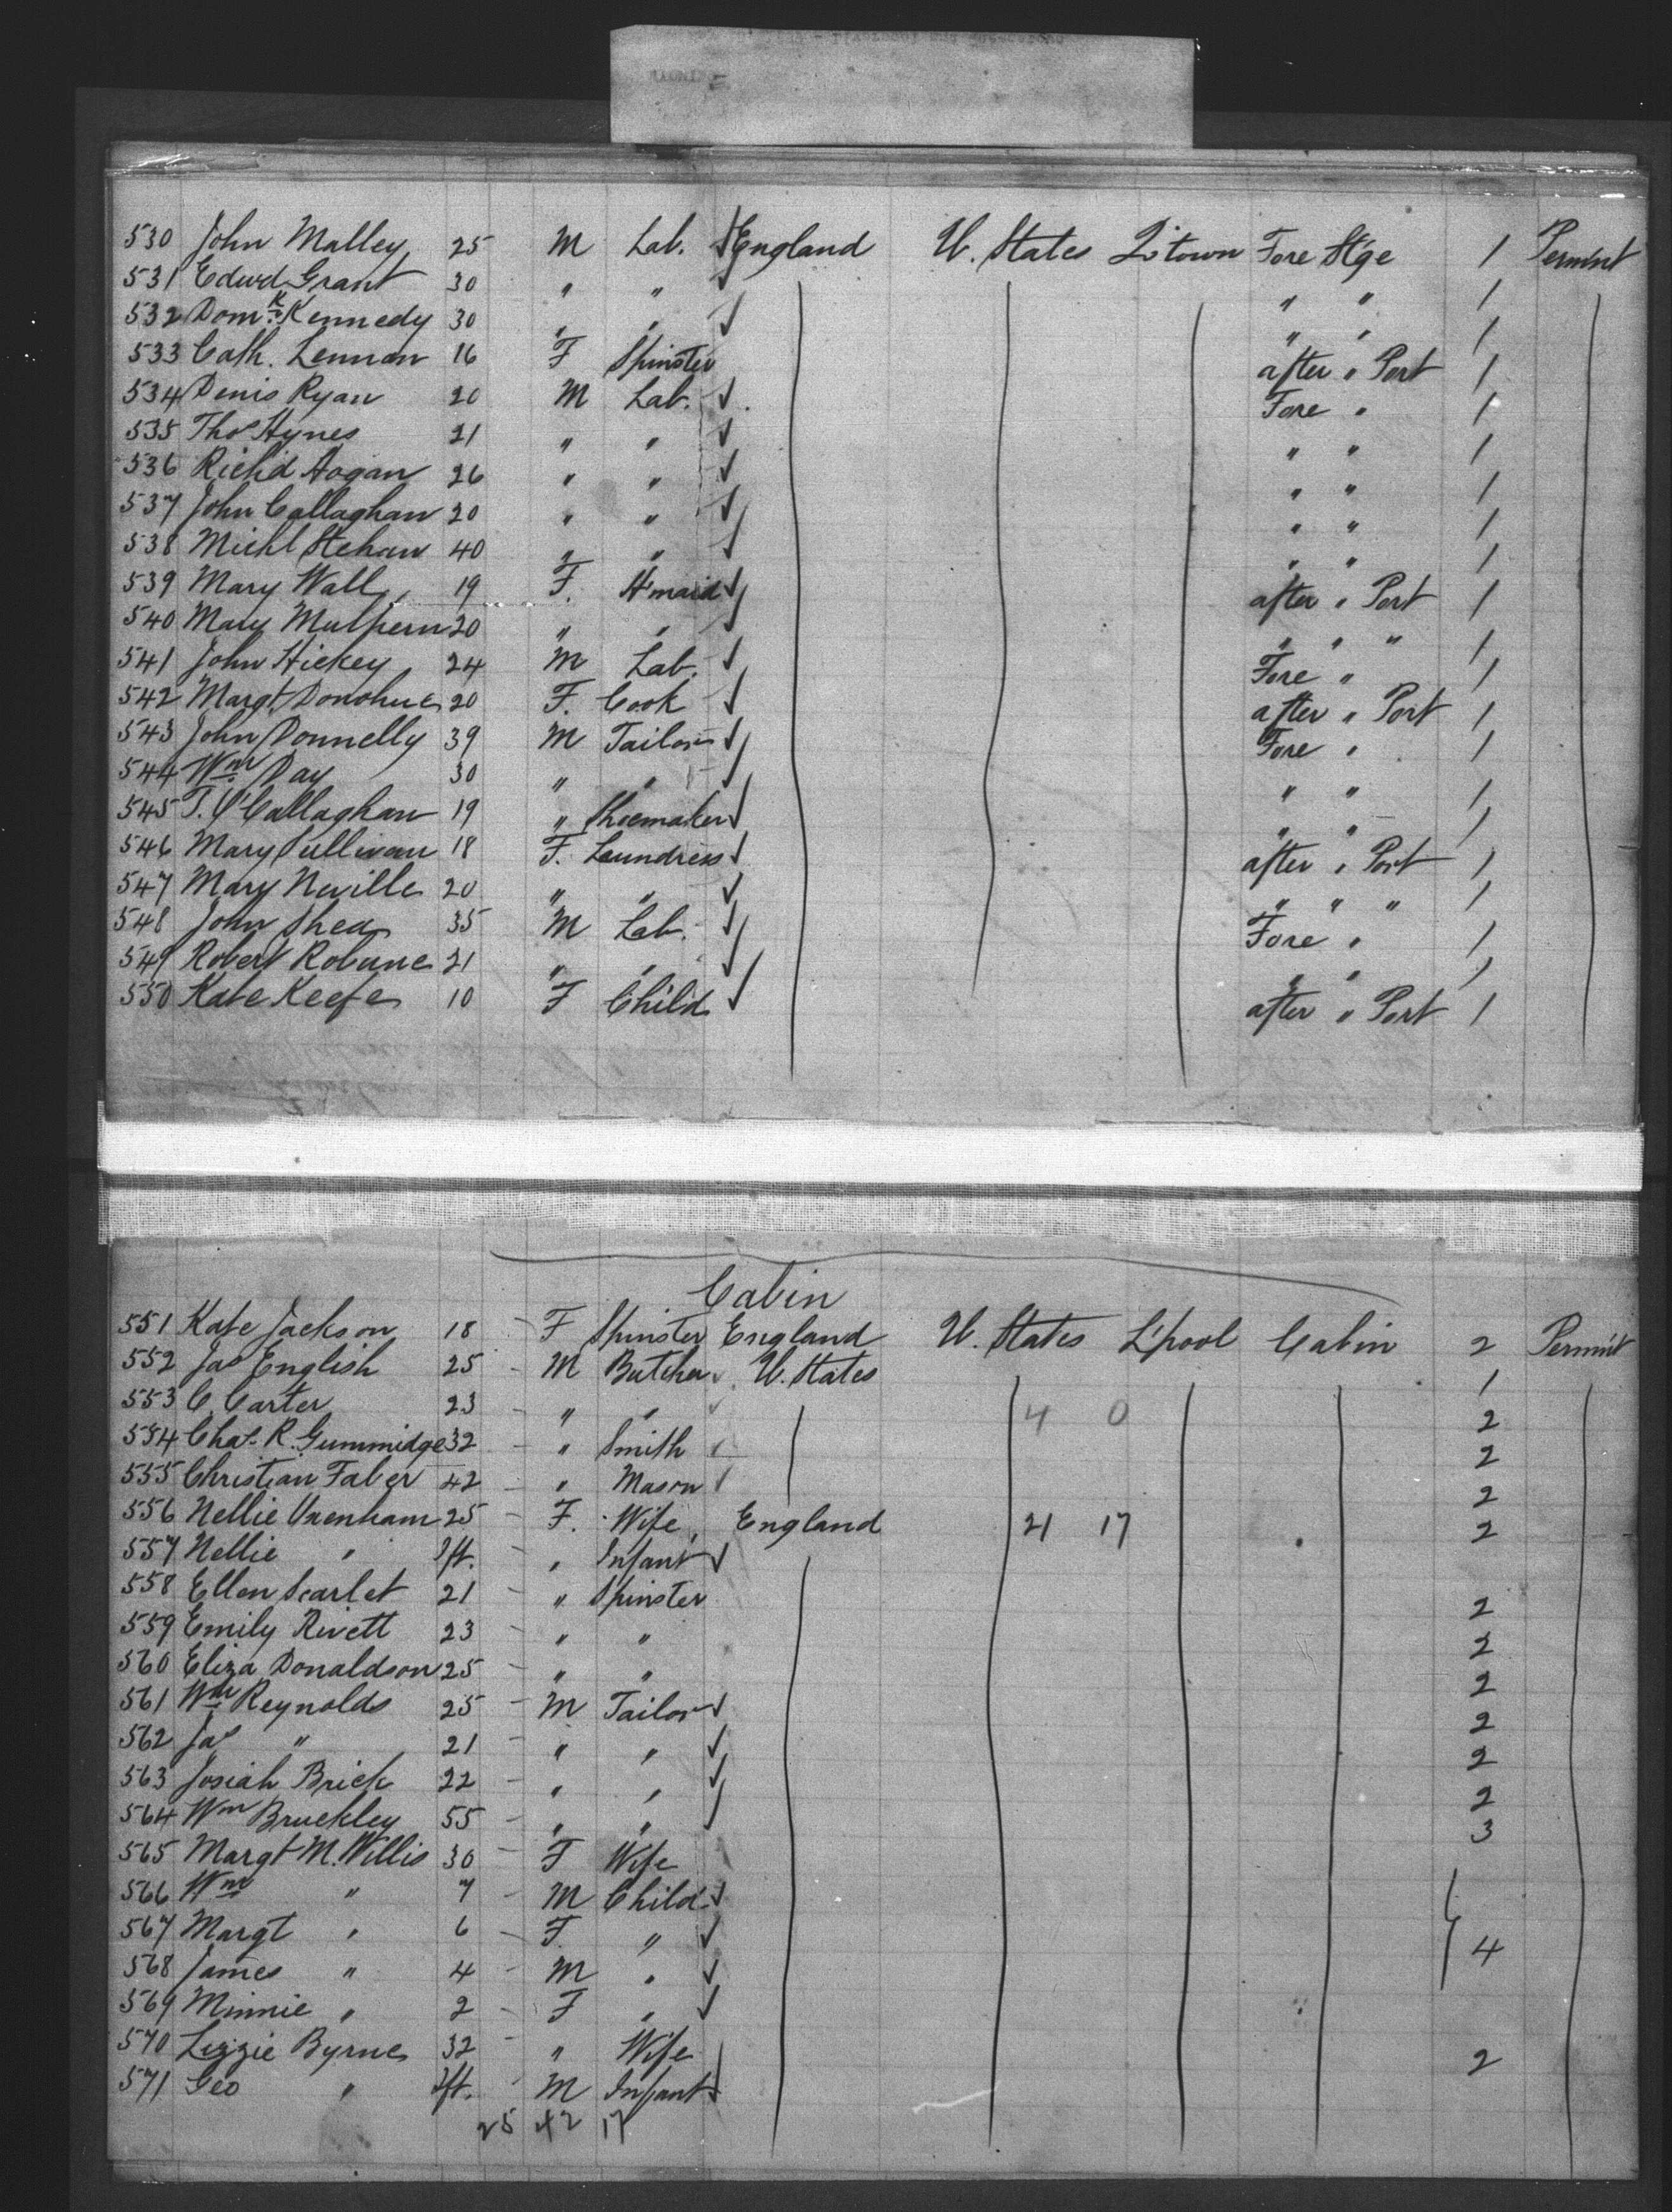 530 John Malley 25 M Lab. England U. States Q'town Fore St'ge 1 Permint
531 Edwd Grant 30 " " " " 1
532 Domk. Kennedy 30 " " " " 1
533 Cath. Lennon 16 F Spinster after " Port 1
534 Denis Ryan 20 M Lab. Fore " 1
535 Thos Hynes 21 " " " " 1
536 Richd Hogan 26 " " " " 1
537 John Callaghan 20 " " " " 1
538 Michl Stehan 40 " " " " 1
539 Mary Wall 19 F. H'maid after " Port 1
540 Mary Mulhern 20 " " " " " 1
541 John Hickey 24 M Lab. Fore " 1
542 Margt Donohue 20 F. Cook after " Port 1
543 John Donnelly 39 M Tailor Fore " 1
544 Wm Day 30 " " " " 1
545 T. O'Callaghan 19 " Shoemaker " " 1
546 Mary Sullivan 18 F. Laundress after " Port 1
547 Mary Neville 20 " " " " " 1
548 John Shea 35 M Lab. Fore " 1
549 Robert 21 " " " " 1
550 Kate Keefe 10 F Child after " Port 1
Cabin
551 Kate Jackson 18 - F Spinster England U. States L'pool Cabin 2 Permint
552 Jas English 25 - M Butcher U. States 1
553 C. Carter 23 - " " 4 0 2
554 Chas. R. Gummidge 32 - " Smith 2
555 Christian Faber 42 - " Mason 2
556 Nellie 25 - F. Wife England 21 17 2
557 Nellie " Ift. " Infant
558 Ellen Scarlet 21 - " Spinster 2
559 Emily Rivett 23 - " " 2
560 Eliza Donaldson 25 - " " 2
561 Wm Reynolds 25 - M Tailor 2
562 Jas " 21 - " " 2
563 Josiah Brick 22 - " " 2
564 Wm Bruckley 55 - " " 3
565 Margt M. Willis 30 - F Wife
566 Wm " 7 - M Child
567 Margt " 6 - F " 4
568 James " 4 - M "
569 Minnie " 2 - F "
570 Lizzie Byrne 32 - " Wife 2
571 Geo " Ift. M Infant
25 42 17